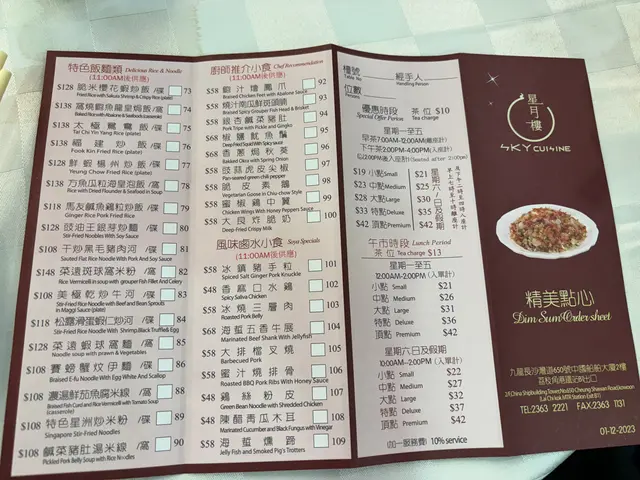 特色飯麵類 Delicious Rice & Noodle
(11:00AM後供應)
$128 脆米櫻花蝦炒飯/碟 73
Fried Rice with Sakura Shrimp & Crispy Rice (plate)
$138 窩燒蝦魚龍皇焗飯/窩 74
Baked Rice with Abalone & Seafoods (casserole)
$138 太極鴛鴦飯/碟 75
Tai Chi Yin Yang Rice (plate)
$138 福建炒飯/碟 76
Fook Kin Fried Rice (plate)
$128 鮮蝦楊州炒飯/碟 77
Yeung Chow Fried Rice (plate)
$138 万魚瓜粒海皇泡飯/窩 78
Rice with Dried Flounder & Seafood in Soup
$118 馬友鹹魚雞粒炒飯/碟 79
Ginger Rice Pork Fried Rice
$128 豉油王銀芽炒麵/碟 80
Stir-Fried Noodles With Soy Sauce
$108 干炒黑毛豬肉河/碟 81
Sauted Flat Rice Noodle With Pork And Soy Sauce
$148 菜遠斑球窩米粉/窩 82
Rice Vermicelli in soup with grouper Fish Fillet And Celery
$108 美極乾炒牛河/碟 83
Stir-Fried Rice Noodles with Beef and Bean Sprouts
in Maggi Sauce (plate)
$118 松露滑蛋蝦仁炒河/碟 84
Stir-Fried Rice Noodle With Shrimp,Black Truffle& Egg
$128 菜遠蝦球窩麵/窩 85
Noodle soup with prawn & Vegetables
$108 賽螃蟹炆伊麵/碟 86
Braised E-fu Noodle With Egg White And Scallop
$108 濃湯鮮茄魚腐米線/窩 88
Braised Fish Curd and Rice Vermicelli with Tomato Soup
(casserole)
$108 特色星洲炒米粉/碟 89
Singapore Stir-Fried Noodles
$108 鹹菜豬肚湯米線/窩 90
Pickled Pork Belly Soup with Rice Noodles
廚師推介小食 Chef Recommendation
(11:00AM後供應)
$58 鮑汁燴鳳爪 92
Braised Chicken Feet with Abalone Sauce
$58 燒汁南瓜鮮斑頭腩 93
Braised Spicy Grouper Fish Head & Brisket
$58 銀杏鹹菜豬肚 94
Pork Tripe with Pickle and Gingko
$68 椒鹽魷魚鬚 95
Deep Fried Squid With Spicy sauce
$68 香蔥焗秋葵 96
Sauted Okra with Spring Onion
$58 豉蒜虎皮尖椒 97
Pan-seared green chili pepper
$58 脆皮素鵝 98
Vegetarian Goose in Chiu-chow Style
$58 蜜椒雞中翼 99
Chicken Wings With Honey Peppers Sauce
$58 大良炸脆奶 100
Deep-Fried Crispy Milk
風味鹵水小食 Soya Specials
(11:00AM後供應)
$58 冰鎮豬手粒 101
Spiced Salt Ginger Pork Knuckle
$48 香麻口水雞 102
Spicy Saliva Chicken
$58 冰燒三層肉 103
Roasted Pork Belly
$68 海蜇五香牛展 104
Marinated Beef Shank With Jellyfish
$58 大排檔叉燒 105
Barbecued Pork
$58 蜜汁燒排骨 106
Roasted BBQ Pork Ribs With Honey Sauce
$48 鷄絲粉皮 107
Green Bean Noodle with Shredded Chicken
$48 陳醋青瓜木耳 108
Marinated Cucumber and Black Fungus with Vinegar
$58 海蜇燻蹄 109
Jelly Fish and Smoked Pig's Trotters
檯號 Table No 經手人 Handling Person
位數 Persons
優惠時段 茶位 $10
Special Offer Period Tea charge
星期一至五
早茶7.00AM-12:00AM(離座計)
下午茶2.00PM-4.00PM(入座計)
以2:00PM後入座計(Seated after 2:00pm)
$19 小點 Small $21
$23 中點 Medium $25
$28 大點 Large $30
$33 特點 Deluxe $35
$42 頂點 Premium $42
星期六/日及假期
午市時段 Lunch Period
茶位 Tea charge $13
星期一至五
12:00AM-2:00PM(入單計)
小點 Small $21
中點 Medium $26
大點 Large $31
特點 Deluxe $36
頂點 Premium $42
星期六日及假期
10:00AM-2:00PM(入單計)
小點 Small $22
中點 Medium $27
大點 Large $32
特點 Deluxe $37
頂點 Premium $42
加一服務費 10% service
星月樓
SKY CUISINE
精美點心
Dim Sum Order sheet
九龍長沙灣道650號中國船舶大廈2樓
荔枝角港鐵站B1出口
2/F,China Shipbuilding Tower,No.650 Cheung Shawan Road,Kowloon
(Lai Chi Kok MTR Station Exit B1)
TEL:2363 2221 FAX:2363 1131
01-12-2023